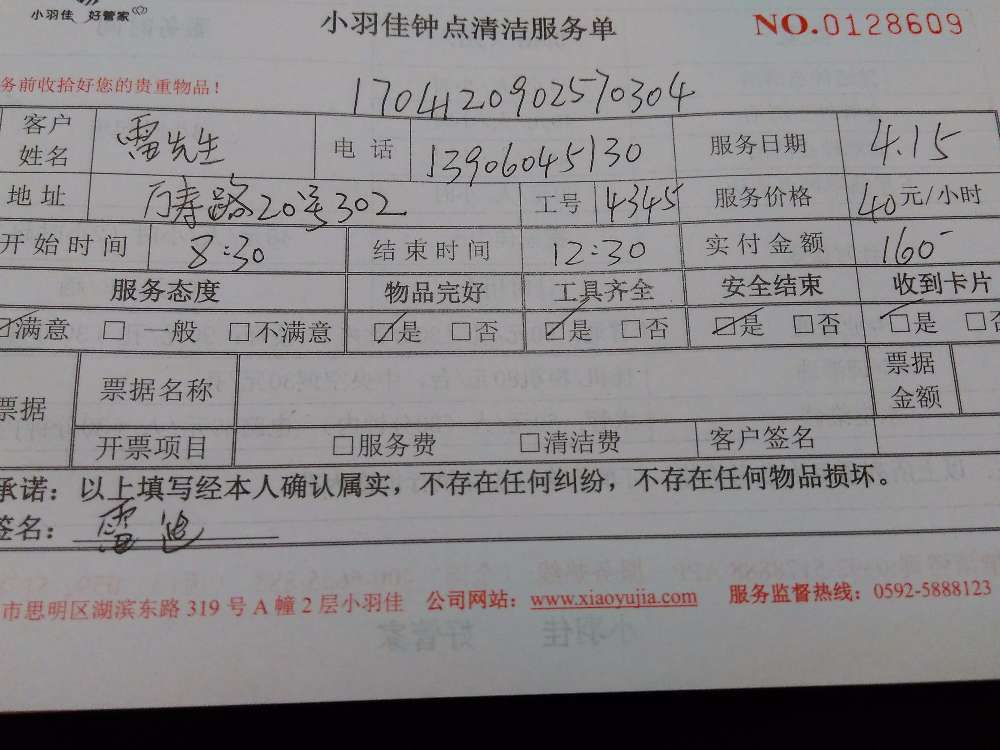 小羽佳 好管家
小羽佳钟点清洁服务单
NO.0128609
务前收拾好您的贵重物品！
1704120902570304
客户姓名 雷先生 电话 13906045130 服务日期 4.15
地址 万寿路20号302 工号 4345 服务价格 40元/小时
开始时间 8:30 结束时间 12:30 实付金额 160
服务态度 物品完好 工具齐全 安全结束 收到卡片
☑满意 □一般 □不满意 ☑是 □否 ☑是 □否 ☑是 □否 ☑是 □否
票据 票据名称 票据金额
开票项目 □服务费 □清洁费 客户签名
承诺：以上填写经本人确认属实，不存在任何纠纷，不存在任何物品损坏。
签名：雷
市思明区湖滨东路 319 号 A 幢 2 层小羽佳 公司网站：www.xiaoyujia.com 服务监督热线：0592-5888123